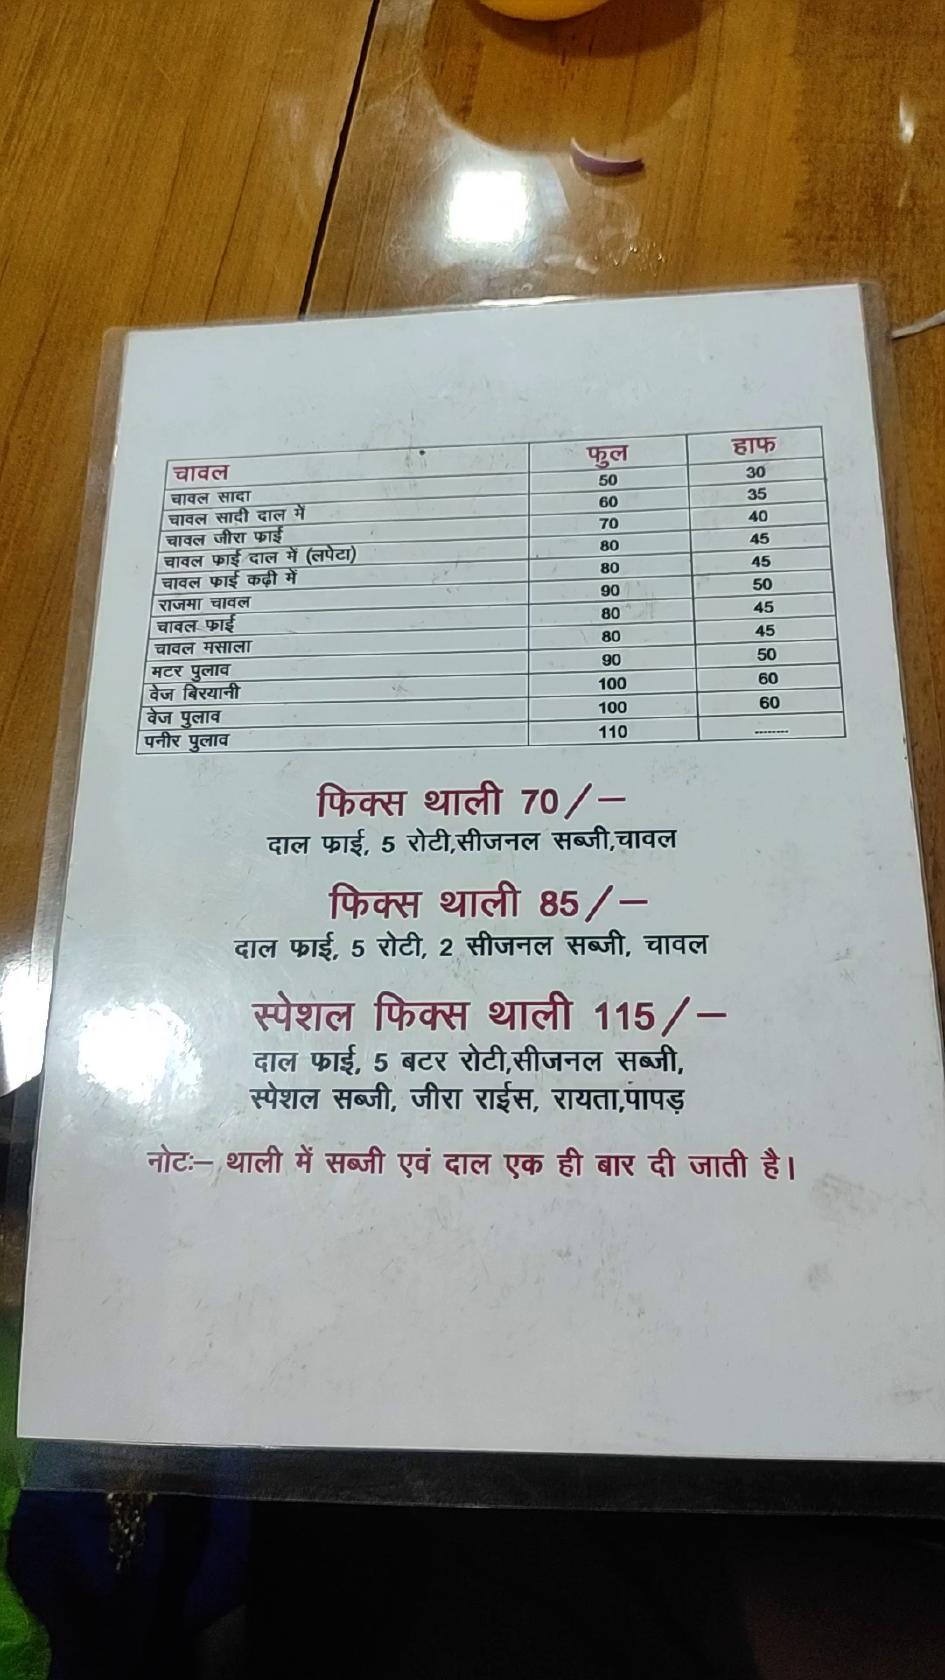 चावल फुल हाफ
चावल सादा 50 30
चावल सादी दाल में 60 35
चावल जीरा फाई 70 40
चावल फाई दाल में (लपेटा) 80 45
चावल फाई कढ़ी में 80 45
राजमा चावल 90 50
चावल फाई 80 45
चावल मसाला 80 45
मटर पुलाव 90 50
वेज बिरयानी 100 60
वेज पुलाव 100 60
पनीर पुलाव 110 --------
फिक्स थाली 70/–
दाल फाई, 5 रोटी,सीजनल सब्जी,चावल
फिक्स थाली 85/–
दाल फ्राई, 5 रोटी, 2 सीजनल सब्जी, चावल
स्पेशल फिक्स थाली 115/–
दाल फाई, 5 बटर रोटी,सीजनल सब्जी,
स्पेशल सब्जी, जीरा राईस, रायता,पापड़
नोटः– थाली में सब्जी एवं दाल एक ही बार दी जाती है।